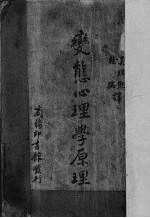 變態心理學原理
商務印書館發行